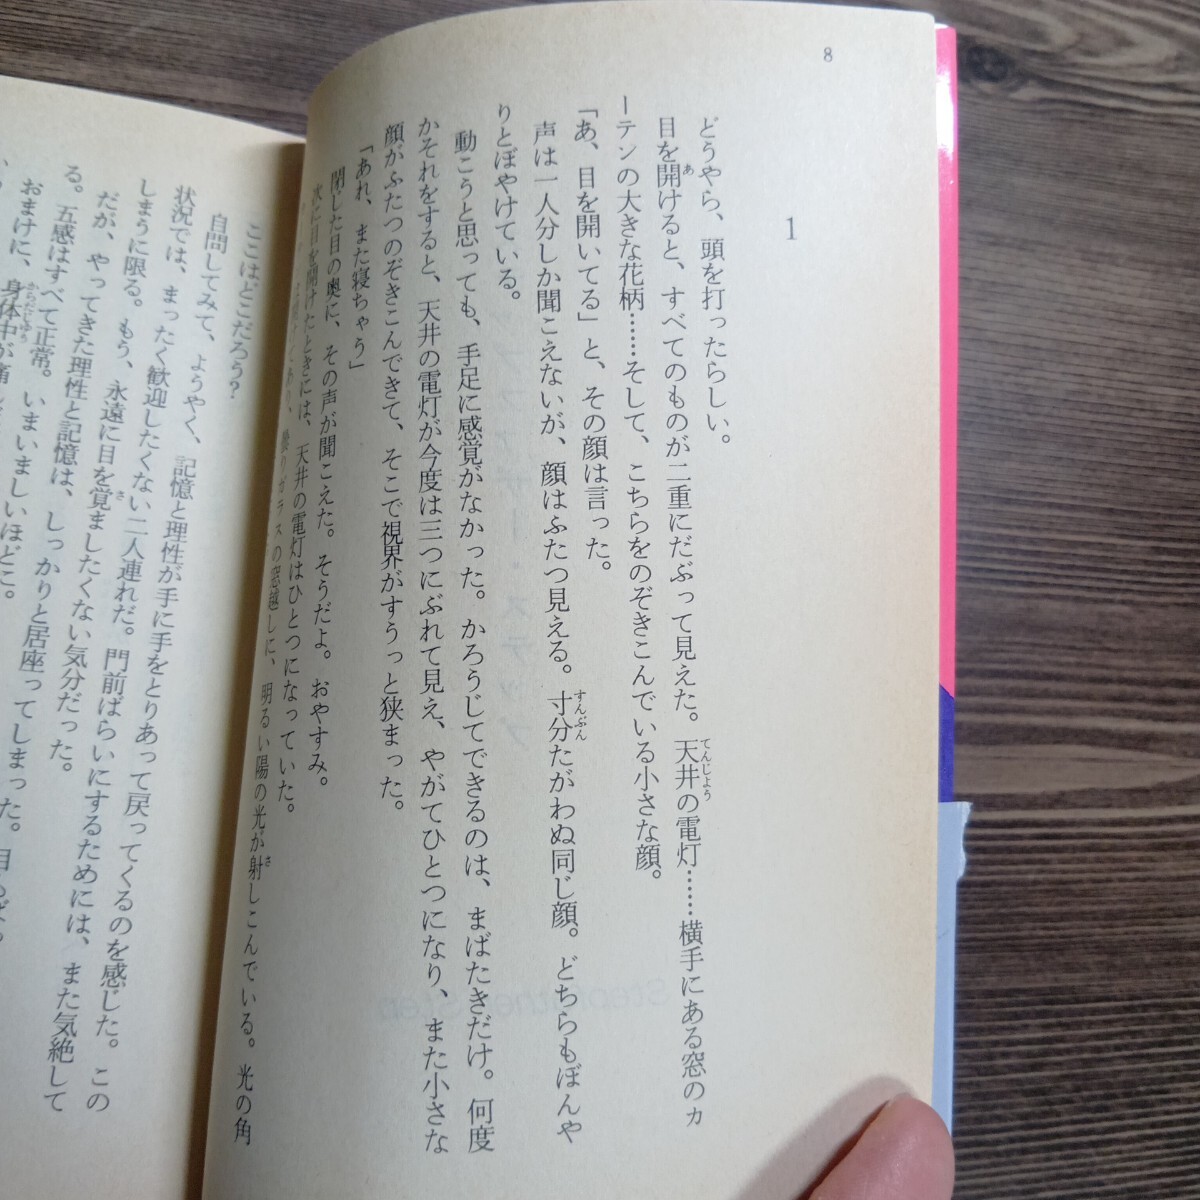 8
1
どうやら、頭を打ったらしい。
目を開けると、すべてのものが二重にだぶって見えた。天井の電灯……横手にある窓のカ
ーテンの大きな花柄……そして、こちらをのぞきこんでいる小さな顔。
「あ、目を開いてる」と、その顔は言った。
声は一人分しか聞こえないが、顔はふたつ見える。寸分たがわぬ同じ顔。どちらもぼんや
りとぼやけている。
動こうと思っても、手足に感覚がなかった。かろうじてできるのは、まばたきだけ。何度
かそれをすると、天井の電灯が今度は三つにぶれて見え、やがてひとつになり、また小さな
顔がふたつのぞきこんできて、そこで視界がすうっと狭まった。
「あれ、また寝ちゃう」
閉じた目の奥に、その声が聞こえた。そうだよ。おやすみ。
次に目を開けたときには、天井の電灯はひとつになっていた。
曇りガラスの窓越しに、明るい陽の光が射しこんでいる。光の角
ここはどこだろう？
自問してみて、ようやく、記憶と理性が手に手をとりあって戻ってくるのを感じた。この
状況では、まったく歓迎したくない二人連れだ。門前ばらいにするためには、また気絶して
しまうに限る。もう、永遠に目を覚ましたくない気分だった。
だが、やってきた理性と記憶は、しっかりと居座ってしまった。目も
る。五感はすべて正常。いまいましいほどに。
おまけに、身体中が痛